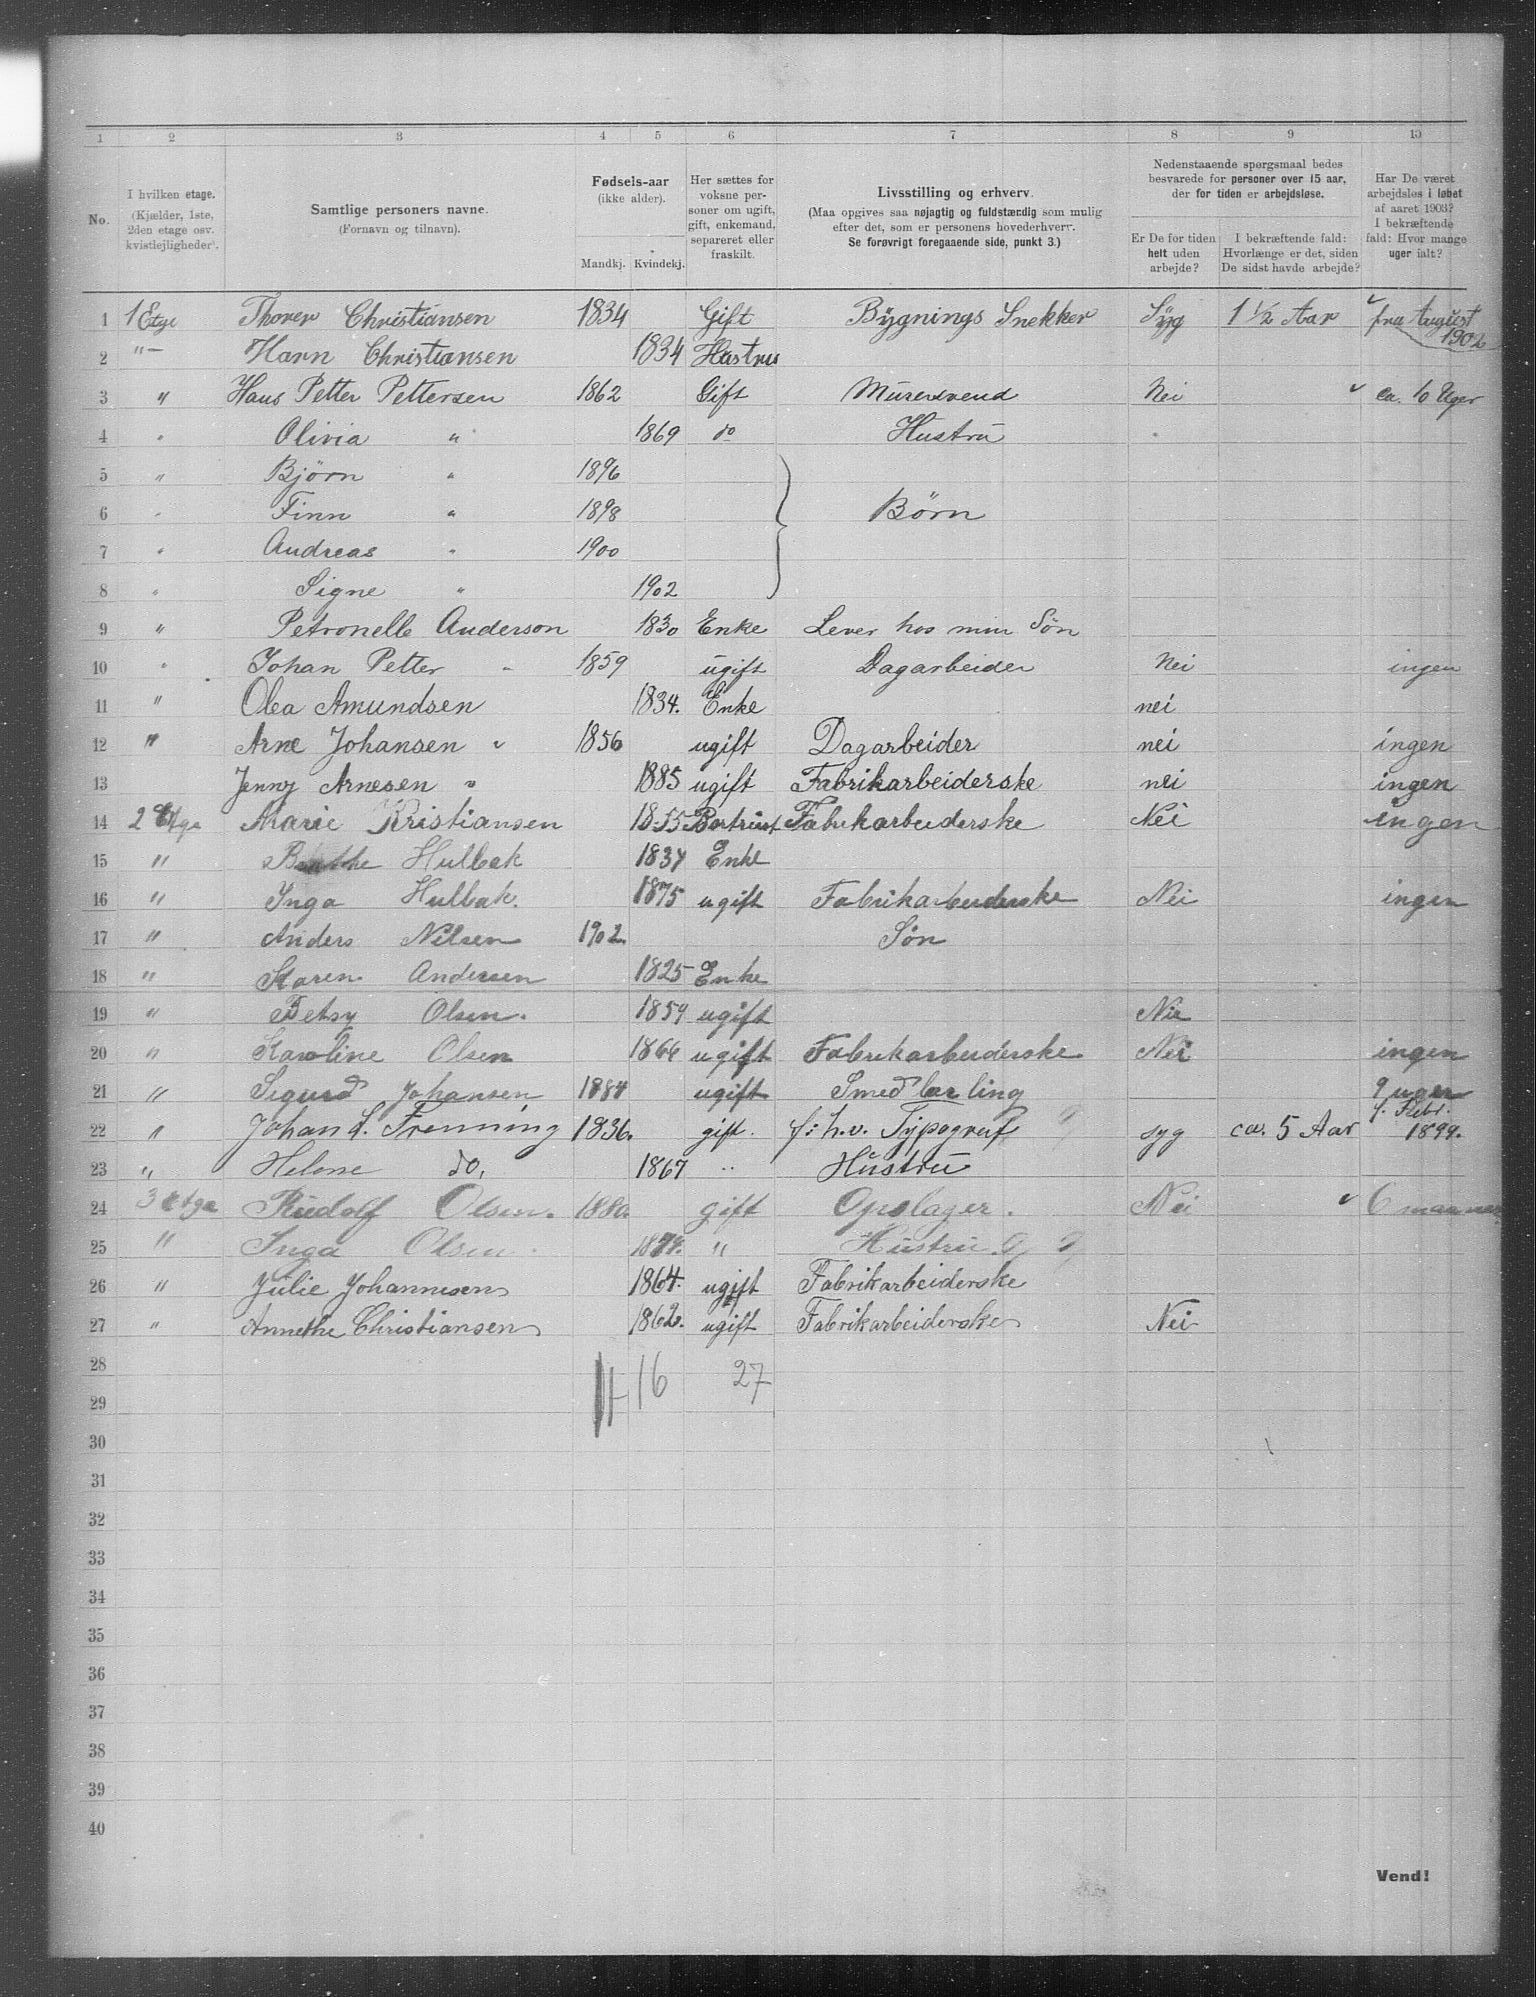 1 2 3 4 5 6 7 8 9 10
No.
I hvilken etage.
(Kjælder, 1ste,
2den etage osv.
kvistlejligheder).
Samtlige personers navne.
(Fornavn og tilnavn).
Fødsels-aar
(ikke alder).
Mandkj. Kvindekj.
Her sættes for
voksne per-
soner om ugift,
gift, enkemand,
separeret eller
fraskilt.
Livsstilling og erhverv.
(Maa opgives saa nøjagtig og fuldstærdig som mulig
efter det, som er personens hovederhverv.
Se forøvrigt foregaaende side, punkt 3.)
Nedenstaaende spørgsmaal bedes
besvarede for personer over 15 aar,
der for tiden er arbejdsløse.
Er De for tiden
helt uden
arbejde?
I bekræftende fald:
Hvorlænge er det, siden
De sidst havde arbejde?
Har De været
arbejdsløs i løbet
af aaret 1903?
I bekræftende
fald: Hvor mange
uger ialt?
1 1 Etge Thorer Christiansen 1834 Gift Bygnings Snekker Syg 1 1/2 Aar fra August 1902
2 "— Christiansen 1834 Hustru
3 " Hans Petter Pettersen 1862 Gift Murersvend Nei ca. 10 Uger
4 " Olivia " 1869 do Hustru
5 " Bjørn " 1896
6 " Finn " 1898 Børn
7 " Andreas " 1900
8 " Signe " 1902
9 " Petronelle Anderson 1830 Enke Lever hos min Søn
10 " Johan Petter " 1859 ugift Dagarbeider Nei ingen
11 " Olea Amundsen 1834. Enke nei
12 " Arne Johansen " 1856 ugift Dagarbeider nei ingen
13 Jenny Arnesen " 1885 ugift Fabrikarbeiderske nei ingen
14 2 Etge Marie Kristiansen 1855 Fabrikarbeiderske Nei ingen
15 " Hulbak 1834 Enke
16 " Inga Hulbak. 1875 ugift Fabrikarbeiderske Nei ingen
17 " Anders Nilsen 1902. Søn
18 " Karen Andersen 1825 Enke
19 " Betsy Olsen. 1859 ugift Nie
20 " Karoline Olsen 1866 ugift Fabrikarbeiderske Nei ingen
21 " Sigurd Johansen 1884 ugift Smed lærling 9 uger
22 " Johan L. Frenning 1836. gift. f: h.v. Typograf syg ca. 5 Aar f. Febr. 1899.
23 " Helene do. 1867 " Hustru
24 3 Etge Rudolf Olsen. 1880. gift Opslager. Nei 6 maanner
25 " Inga Olsen. 1879. " Hustru
26 " Julie Johannesen 1864. ugift Fabrikarbeiderske
27 " Annethe Christiansen 1862. ugift Fabrikarbeiderske Nei
28 11 16 27
29
30
31
32
33
34
35
36
37
38
39
40
Vend!